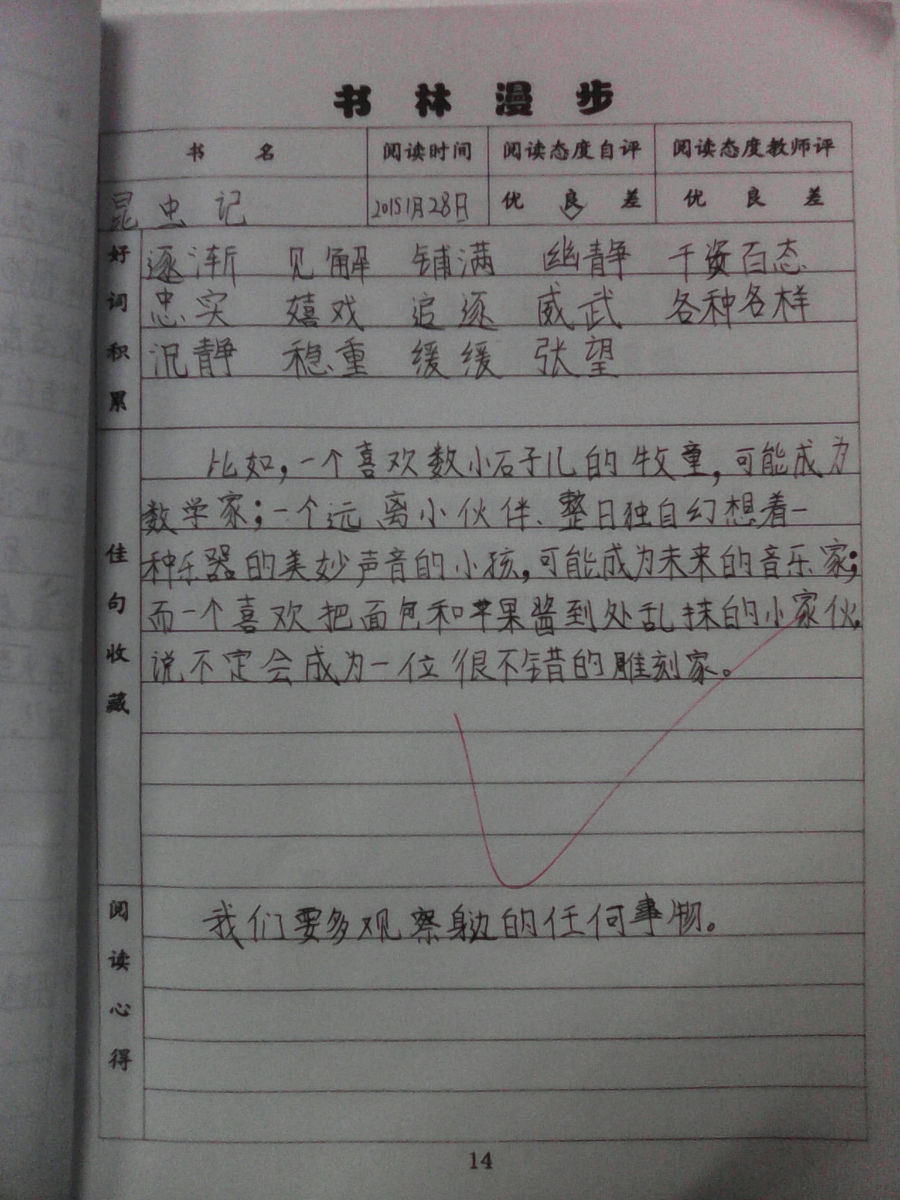 书林漫步
书名 阅读时间 阅读态度自评 阅读态度教师评
昆虫记 2015 1月28日 优 良 差 优 良 差
好词积累
逐渐 见解 铺满 幽静 千姿百态
忠实 嬉戏 追逐 威武 各种各样
沉静 稳重 缓缓 张望
佳句收藏
比如，一个喜欢数小石子儿的牧童，可能成为
数学家；一个远离小伙伴、整日独自幻想着一
种乐器的美妙声音的小孩，可能成为未来的音乐家；
而一个喜欢把面包和苹果酱到处乱抹的小家伙，
说不定会成为一位很不错的雕刻家。
阅读心得
我们要多观察身边的任何事物。
14